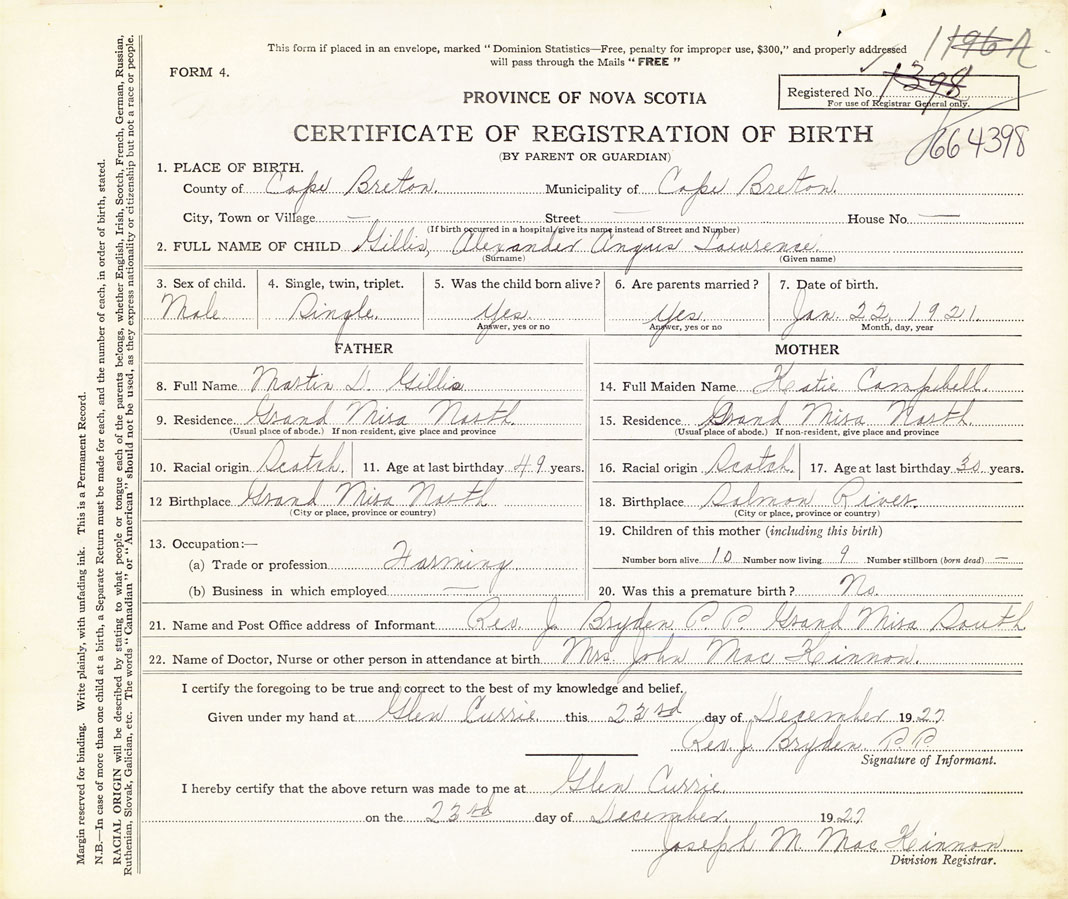 This form if placed in an envelope, marked " Dominion Statistics—Free, penalty for improper use, $300," and properly addressed
will pass through the Mails " FREE "
1196 A
FORM 4.
Registered No. 1398
For use of Registrar General only.
PROVINCE OF NOVA SCOTIA
CERTIFICATE OF REGISTRATION OF BIRTH
664398
(BY PARENT OR GUARDIAN)
1. PLACE OF BIRTH.
County of Cape Breton. Municipality of Cape Breton.
City, Town or Village — Street — House No. —
(If birth occurred in a hospital, give its name instead of Street and Number)
2. FULL NAME OF CHILD Gillis, Alexander Angus Lawrence.
(Surname) (Given name)
3. Sex of child. 4. Single, twin, triplet. 5. Was the child born alive? 6. Are parents married? 7. Date of birth.
Male Single. Yes Yes. Jan. 22, 1921.
Answer, yes or no Answer, yes or no Month, day, year
FATHER MOTHER
8. Full Name Martin D. Gillis 14. Full Maiden Name Katie Campbell.
9. Residence Grand Mira North. 15. Residence Grand Mira North.
(Usual place of abode.) If non-resident, give place and province (Usual place of abode.) If non-resident, give place and province
10. Racial origin Scotch. 11. Age at last birthday 49 years. 16. Racial origin Scotch. 17. Age at last birthday 30 years.
12 Birthplace Grand Mira North 18. Birthplace Salmon River.
(City or place, province or country) (City or place, province or country)
13. Occupation:— 19. Children of this mother (including this birth)
(a) Trade or profession Farming Number born alive 10 Number now living 9 Number stillborn (born dead) —
(b) Business in which employed — 20. Was this a premature birth? No.
21. Name and Post Office address of Informant Rev. J. Bryden P.P. Grand Mira South
22. Name of Doctor, Nurse or other person in attendance at birth Mrs. John Mac Kinnon.
I certify the foregoing to be true and correct to the best of my knowledge and belief.
Given under my hand at Glen Currie this 23rd day of December 1927
Rev J. Bryden P.P.
Signature of Informant.
I hereby certify that the above return was made to me at Glen Currie
on the 23rd day of December 1927
Joseph M. Mac Kinnon
Division Registrar.
Margin reserved for binding. Write plainly, with unfading ink. This is a Permanent Record.
N.B.—In case of more than one child at a birth, a Separate Return must be made for each, and the number of each, in order of birth, stated.
RACIAL ORIGIN will be described by stating to what people or tongue each of the parents belongs, whether English, Irish, Scotch, French, German, Russian,
Ruthenian, Slovak, Galician, etc. The words "Canadian" or "American" should not be used, as they express nationality or citizenship but not a race or people.